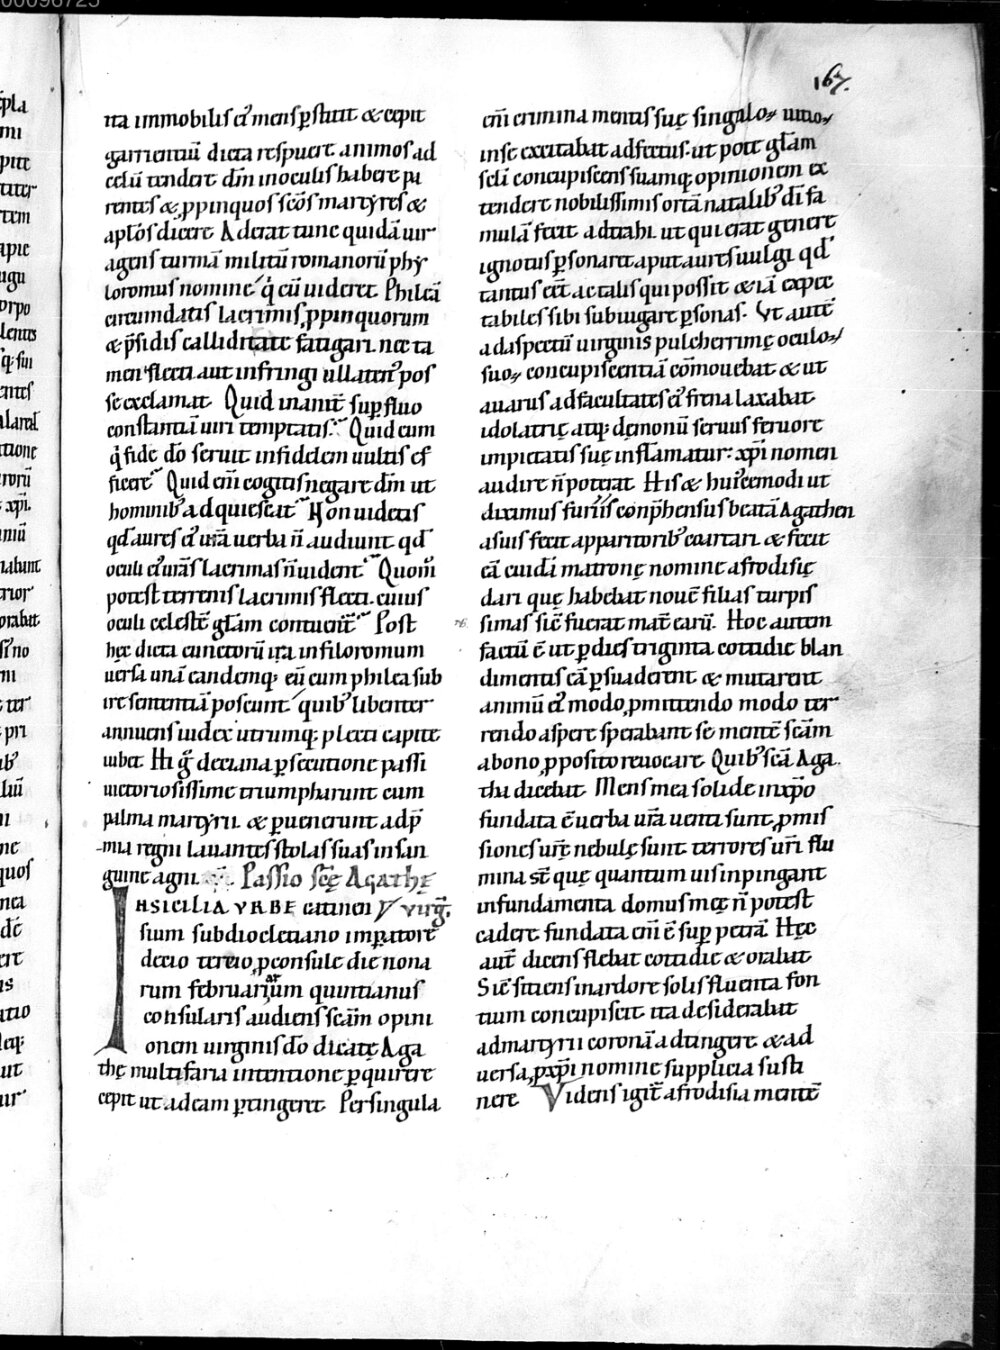 167.
ita immobilis ei' mens p̄stitit & cepit
garrientiū dicta respuere animos ad
celū tendere dm̄ in oculis habere pa
rentes & ꝓpinquos scōs martyres &
aplōs dicere Aderat tunc quidā uir
agens turmam militū romanorū phy
loromus nomine q̓ cū uideret Phileā
circumdatis lacrimis ꝓpinquorum
& p̄sidis calliditate fatigari. nec ta
men flecti aut infringi ullaten' pos
se exclamat Quid inanit̄ sup̄fluo
constantiā uiri temptatis. Quid eum
q̓ fidē dō seruit infidelem uultis ef
ficere Quid eū cogitis negare dm̄ ut
hominib' adquiescat Non uidetis
qđ aures ei' ur̄a uerba n̄ audiunt qđ
oculi ei' ur̄as lacrimas n̄ uident Quom̊
potest terrenis lacrimis flecti. cuius
oculi celestē głam contuent̄ Post
hęc dicta cunctorū ira in filoromum
uersa unā eandemq; eū cum philea sub
ire sententiā poscunt quib' libenter
annuens iudex utrumq; plecti capite
iubet Hi g̊ deciana ꝑsecutione passi
uictoriosissime triumpharunt cum
palma martyrii & ꝑuenerunt ad p̄
mia regni lauantes stolas suas in san
guine agni. Passio scę Agathę
IN SICILIA VRBE catinen virḡ.
sium sub diocletiano imꝑatore
decio tercio ꝓconsule die nona
rum februariarum quintianus
consularis audiens scām opini
onem uirginis dō dicatę Aga
thę multifaria intentione ꝑquirere
cepit ut ad eam ꝑtingeret Per singula
eni crimina mentis suę singaloꝝ uitioꝝ
in se excitabat adfectus. ut pote głam
scłi concupiscens suamq; opinionem ex
tendere nobilissimis ortā natalib' di fa
mulā fecit adtrahi. ut qui erat genere
ignotus ꝑsonaret aput aures uulgi qđ
tantus eēt ac talis qui possit & iā expec
tabiles sibi subiugare ꝑsonas. Vt autē
ad aspectū uirginis pulcherrimę oculoꝝ
suoꝝ concupiscentiā cōmouebat & ut
auarus ad facultates ei' frena laxabat
idolatrię atq; dęmonū seruus feruore
impietatis suę inflāmatur. xp̄i nomen
audire n̄ poterat His & hui'cemodi ut
diximus furiis conp̄hensus beatā Agathen
a suis fecit apparitorib' coartari & fecit
eā cuidā matronę nomine afrodisię
dari quę habebat nouē filias turpis
simas sic̄ fuerat mat̄ earū. Hoc autem
factū ē ut ꝑ dies triginta cottidie blan
dimentis eā ꝑsuaderent & mutarent
animū ei' modo ꝓmittendo modo ter
rendo aspere sperabant se mentē scām
a bono ꝓposito reuocare Quib' scā Aga
tha dicebat Mens mea solide in xp̄o
fundata ē uerba ur̄a uenti sunt ꝓmis
siones ur̄ę nebulę sunt terrores ur̄i flu
mina st̄ quę quantum uis inpingant
in fundamenta domus męę n̄ potest
cadere fundata eni ē sup̄ petrā Hęc
aut̄ dicens flebat cottidie & orabat
Sic̄ sitiens in ardore solis fluenta fon
tium concupiscit ita desiderabat
ad martyrii coronā adtingere & ad
uersa ꝓ xp̄i nomine supplicia susti
nere Videns igit̄ afrodisia mentē